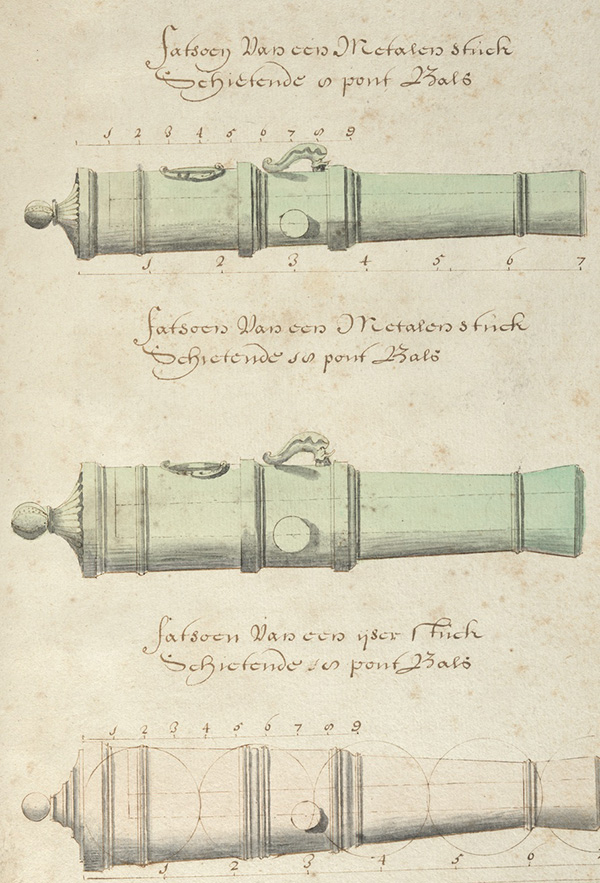 fatsoen Van een Metalen stuck
Schietende 8 pont Bals
1 2 3 4 5 6 7 8 9
1 2 3 4 5 6 7
fatsoen Van een Metalen stuck
Schietende 18 pont Bals
fatsoen Van een ijser stuck
Schietende 18 pont Bals
1 2 3 4 5 6 7 8 9
1 2 3 4 5